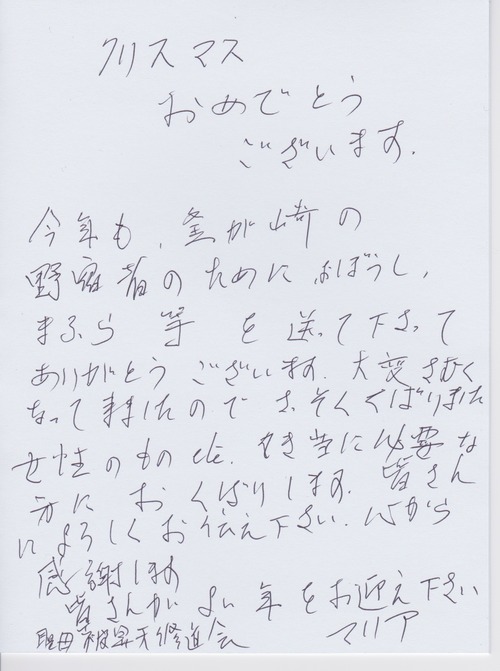 クリスマス
おめでとう
ございます.
今年も、釜が崎の
野宿者のために ぼうし,
まふら 等 を 送って下さって
ありがとう ございます. 大変さむく
なって きましたので さっそく くばりました
女性のもの etc. 本当に必要な
方に おくばりします. 皆さん
によろしくお伝え下さい. 心から
感謝します
皆さんがよい年をお迎え下さい
聖母被昇天修道会 マリア